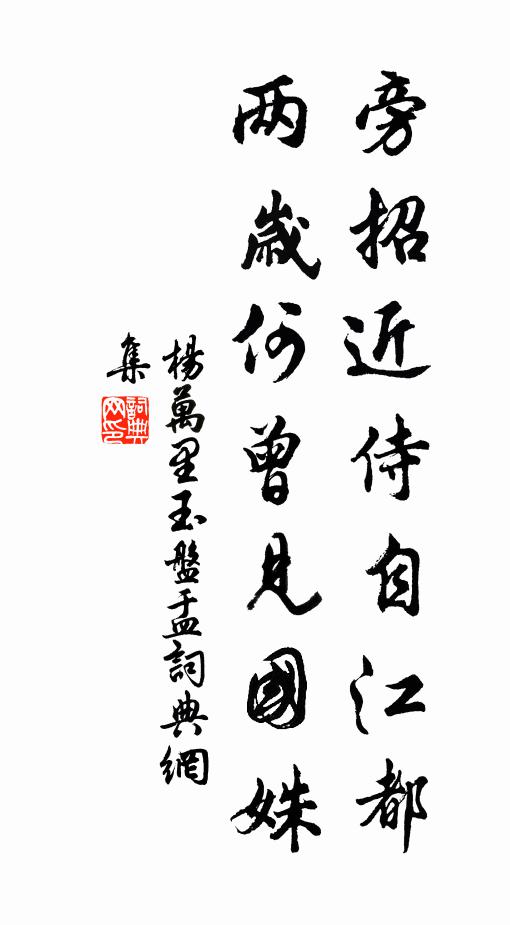 旁招近侍自江都
两歲何曾見國姝
楊萬里玉盤盂詞典網
集
詞典
网印